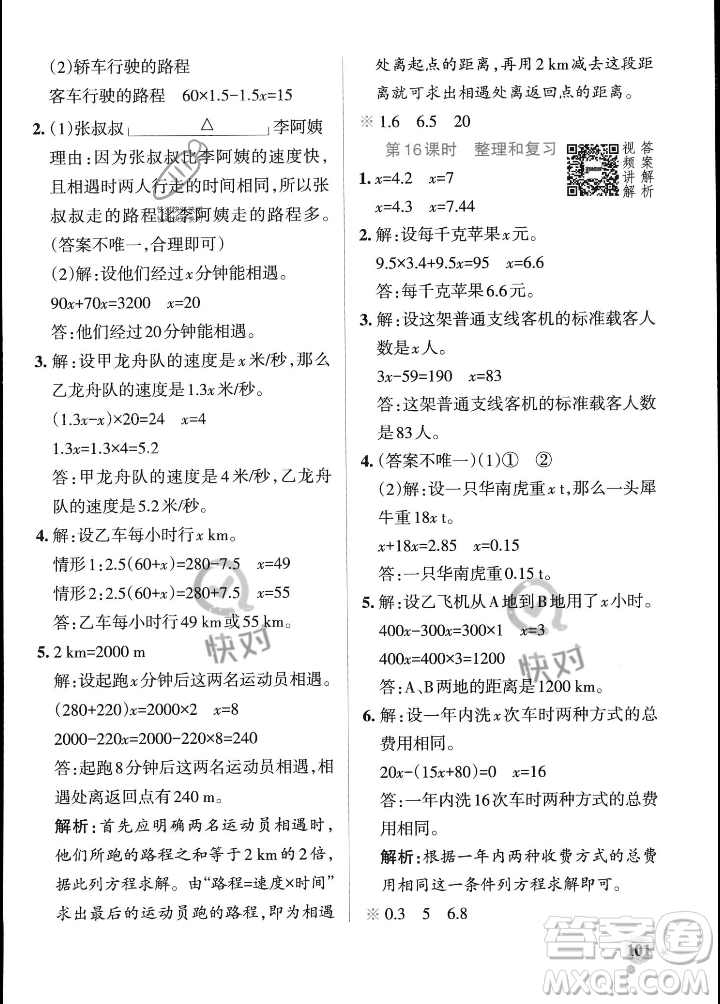 (2)轿车行驶的路程
客车行驶的路程 60×1.5-1.5x=15
2. (1)张叔叔 △ 李阿姨
理由:因为张叔叔比李阿姨的速度快,
且相遇时两人行走的时间相同,所以张
叔叔走的路程比李阿姨走的路程多。
(答案不唯一,合理即可)
(2)解:设他们经过x分钟能相遇。
90x+70x=3200 x=20
答:他们经过20分钟能相遇。
3. 解:设甲龙舟队的速度是x米/秒,那么
乙龙舟队的速度是1.3x米/秒。
(1.3x-x)×20=24 x=4
1.3x=1.3×4=5.2
答:甲龙舟队的速度是4米/秒,乙龙舟
队的速度是5.2米/秒。
4. 解:设乙车每小时行x km。
情形1:2.5(60+x)=280-7.5 x=49
情形2:2.5(60+x)=280+7.5 x=55
答:乙车每小时行49 km或55 km。
5. 2 km=2000 m
解:设起跑x分钟后这两名运动员相遇。
(280+220)x=2000×2 x=8
2000-220x=2000-220×8=240
答:起跑8分钟后这两名运动员相遇,相
遇处离返回点有240 m。
解析:首先应明确两名运动员相遇时,
他们所跑的路程之和是2 km的2倍,
据此列方程求解。由“路程=速度×时间”
求出较慢的运动员跑的路程,即为相遇
处离起点的距离,再用2 km减去这段距
离就可求出相遇处离返回点的距离。
※ 1.6 6.5 20
第16课时 整理和复习
视频讲解
答案解析
1. x=4.2 x=7
x=4.3 x=7.44
2. 解:设每千克苹果x元。
9.5×3.4+9.5x=95 x=6.6
答:每千克苹果6.6元。
3. 解:设这架普通支线客机的标准载客人
数是x人。
3x-59=190 x=83
答:这架普通支线客机的标准载客人数
是83人。
4. (答案不唯一)(1)① ②
(2)解:设一只华南虎重x t,那么一头犀
牛重18x t。
x+18x=2.85 x=0.15
答:一只华南虎重0.15 t。
5. 解:设乙飞机从A地到B地用了x小时。
400x-300x=300×1 x=3
400x=400×3=1200
答:A、B两地的距离是1200 km。
6. 解:设一年内洗x次车时两种方式的总
费用相同。
20x-(15x+80)=0 x=16
答:一年内洗16次车时两种方式的总费
用相同。
解析:根据一年内两种收费方式的总费
用相同这一条件列方程求解即可。
※ 0.3 5 6.8
101
快对
快对
答案圈
MXQE.COM